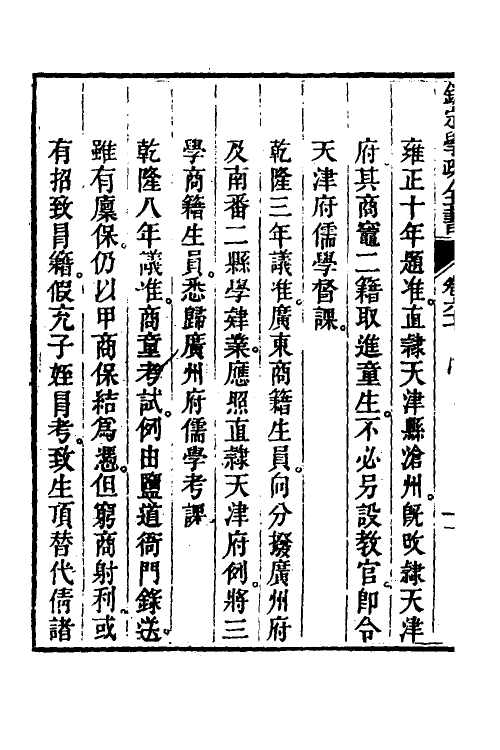 欽定學政全書　卷六
雍正十年題准。直隷天津縣滄州。旣改隷天津
府其商竈二籍取進童生。不必另設教官。卽令
天津府儒學督課。
乾隆三年議准。廣東商籍生員。向分撥廣州府
及南番二縣學肄業。應照直隷天津府例。將三
學商籍生員。悉歸廣州府儒學考課。
乾隆八年議准。商童考試。例由鹽道衙門錄送。
雖有廩保。仍以甲商保結爲憑。但窮商射利。或
有招致冐籍。假充子姪冐考。致生頂替代倩諸